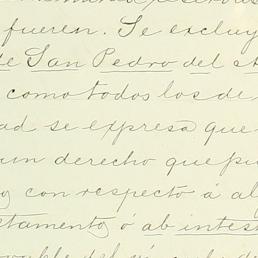 fueren. Se excluy
de San Pedro del
como todos los de
ad se expresa que
un derecho que pu
con respecto á al
stamento ó ab intes